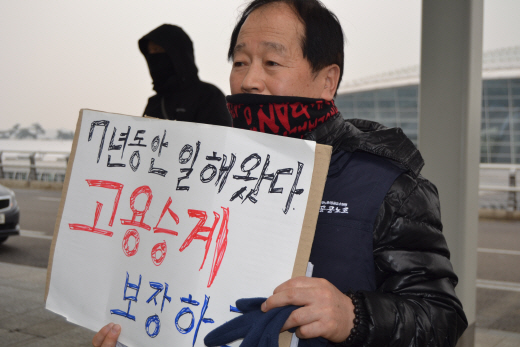 7년동안 일해왔다.
고용승계
보장하